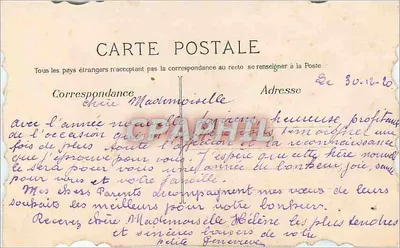 CARTE POSTALE
Tous les pays étrangers n'acceptant pas la correspondance au recto se renseigner à la Poste
Correspondance
Adresse
Le 30-12-20
Chère Mademoiselle
avec l'année nouvelle heureuse profitant
de l'occasion témoigner une
fois de plus toute l'affection et la reconnaissance
que j'éprouve pour vous. J'espère que cette ère nouvelle
sera pour vous une année de bonheur joie santé
pour vous et votre famille.
Mes chers Parents accompagnent mes vœux de leurs
souhaits les meilleurs pour votre bonheur.
Recevez chère Mademoiselle Hélène les plus tendres
et sincères baisers de votre
petite Geneviève
CPAPHIL